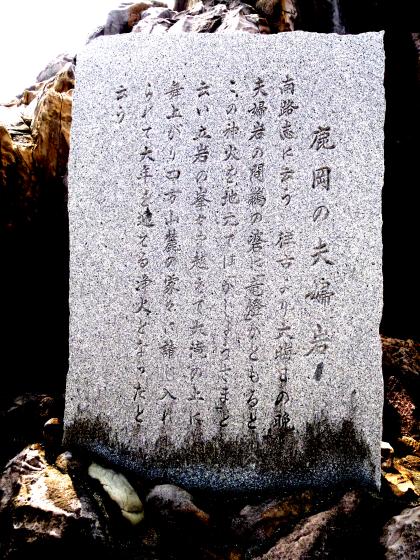 鹿岡の夫婦岩
南路志に云う 往古より大晦日の晩
夫婦岩の間鵜の碆に竜燈がともると
この神火を地元ではかしょうさまと
云い立岩の峯から越えて大滝の上に
舞上がり四方山麓の家々に静 入れ
られて大年を造える浄火となったと
云う